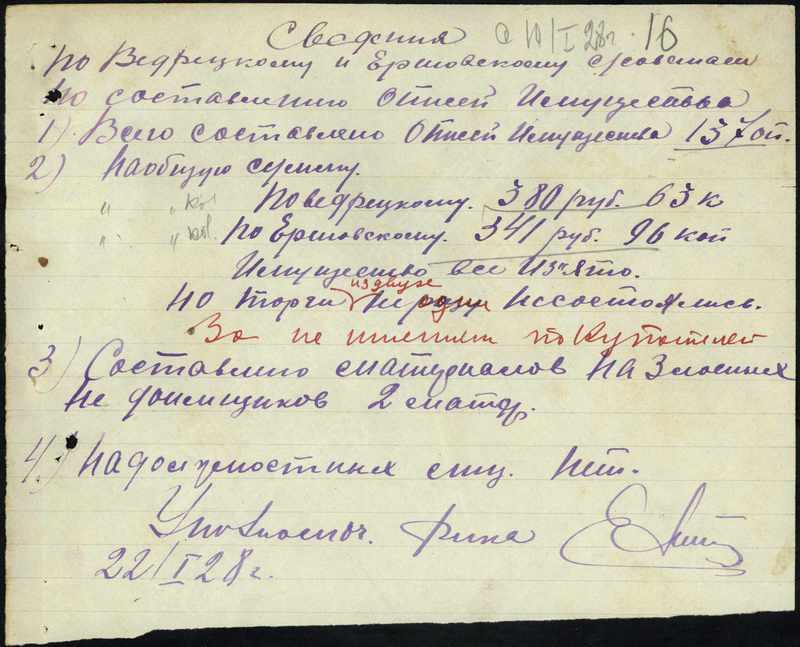 Сведения с 10/I 28 г. 16
по Ведрецкому и Ершовскому с/советам
по составлению Описей Имущества
1) Всего составлено Описей Имущества 137 оп.
2) На общую сумму.
" " кол По ведрецкому. 380 руб. 63 к
" " кол. по Ершовскому. 341 руб. 96 коп
Имущество все Из"ято.
из двух
но торги не один несостоялись.
За не имением покупателей
3) Составлено сматериалов На Злосных
не доимщиков 2 матер.
4) На должностных лиц. Нет.
Уполномоч. Рика
22/I 28 г.